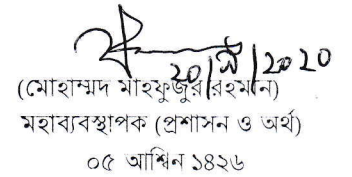 20/9/2020
(মোহাম্মদ মাহফুজুর রহমান)
মহাব্যবস্থাপক (প্রশাসন ও অর্থ)
০৫ আশ্বিন ১৪২৬